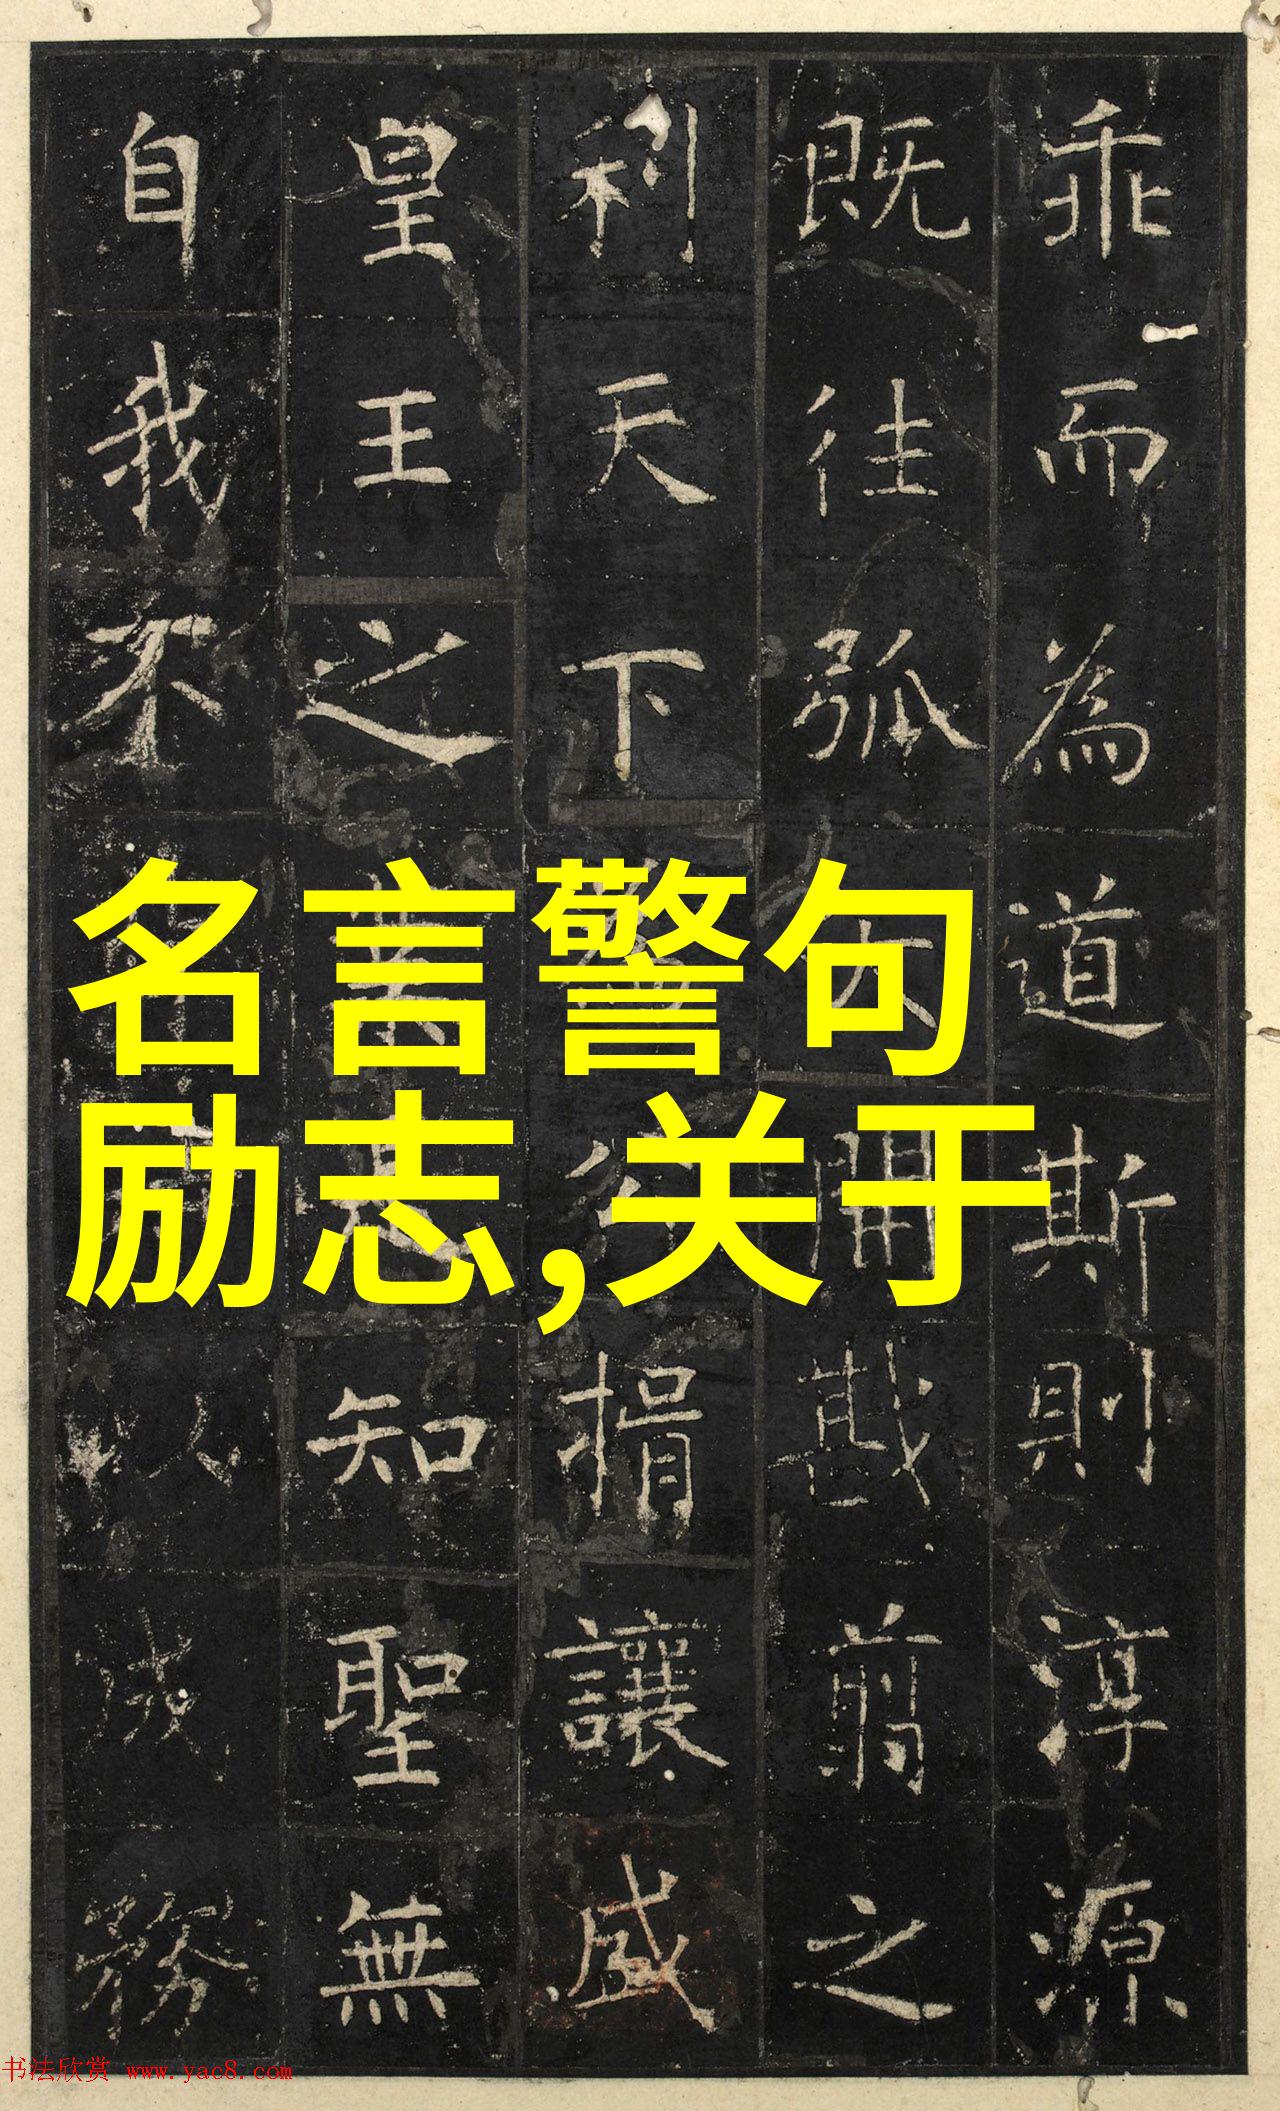 乖而為道斯則淳源
既往弧大開戡翦之
利天下捐讓咸
皇王之知聖無
自我不務
名言警句
励志,关于
书法欣赏 www.yac8.com